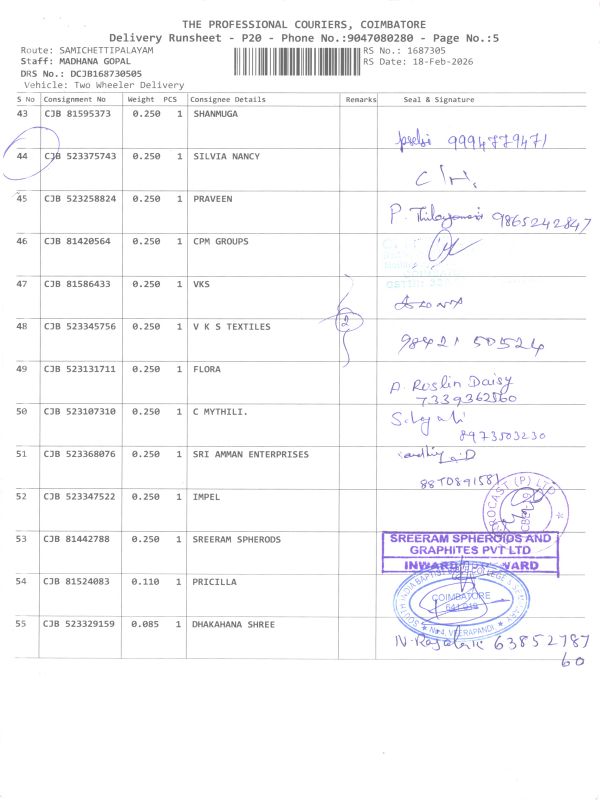 THE PROFESSIONAL COURIERS, COIMBATORE
Delivery Runsheet - P20 - Phone No.:9047080280 - Page No.:5
Route: SAMICHETTIPALAYAM RS No.: 1687305
Staff: MADHANA GOPAL RS Date: 18-Feb-2026
DRS No.: DCJB168730505
Vehicle: Two Wheeler Delivery
S No Consignment No Weight PCS Consignee Details Remarks Seal & Signature
43 CJB 81595373 0.250 1 SHANMUGA
9994779471
44 CJB 523375743 0.250 1 SILVIA NANCY
45 CJB 523258824 0.250 1 PRAVEEN
P. 9865242847
46 CJB 81420564 0.250 1 CPM GROUPS
47 CJB 81586433 0.250 1 VKS
48 CJB 523345756 0.250 1 V K S TEXTILES
2
98421 50524
49 CJB 523131711 0.250 1 FLORA
A. Roslin Daisy
7339362560
50 CJB 523107310 0.250 1 C MYTHILI.
8973503230
51 CJB 523368076 0.250 1 SRI AMMAN ENTERPRISES
52 CJB 523347522 0.250 1 IMPEL
53 CJB 81442788 0.250 1 SREERAM SPHERODS
SREERAM SPHEROIDS AND
GRAPHITES PVT LTD
54 CJB 81524083 0.110 1 PRICILLA
COIMBATORE
641 019
55 CJB 523329159 0.085 1 DHAKAHANA SHREE
63852787
60